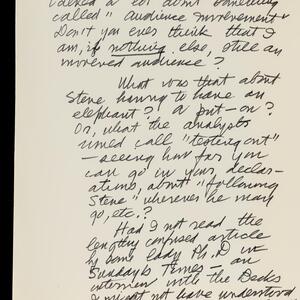 talked a lot about something
called "audience involvement"
Don't you ever think that I
am, if nothing else, still an
involved audience?
What was that about
Steve having to have an
elephant? A put-on?
Or, what the analysts
used call "testing out"
— seeing how far you
can go in your declar-
ations, about "following
Steve" wherever he may
go, etc.?
Had I not read the
lengthy confused article
by some lady Ph.D in
Sunday's Times — an
interview with the Becks
I might not have understood